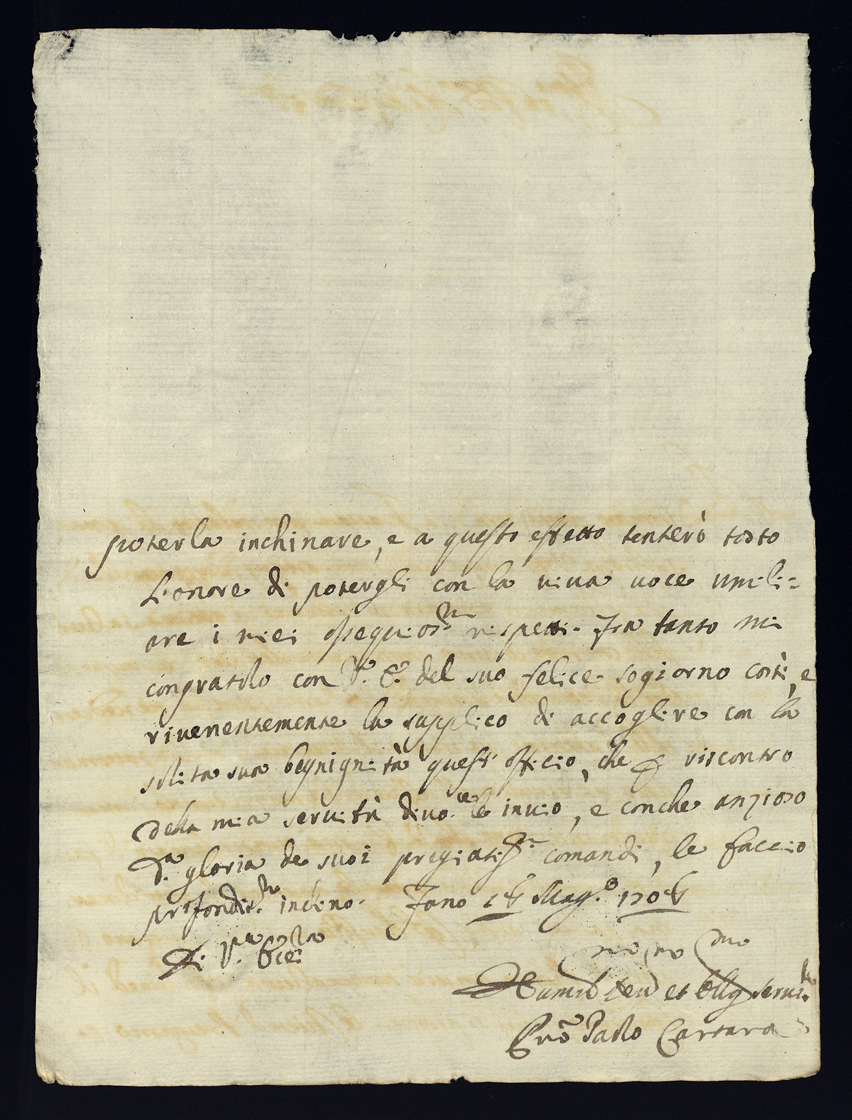 poterla inchinare, e a questo effetto tenterò tosto
l'onore di potergli con la viua uoce umili=
are i miei ossequios.mi rispetti. Fra tanto mi
congratulo con V. E. del suo felice sogiorno costì, e
riuerentemente la supplico di accogliere con la
solita sua begnignità quest'officio, che riscontro
della mia seruitù diuo.te le inuio, e con che anzioso
d.a gloria de suoi pregiatis.mi comandi, le faccio
profondis.mo inchino. Fano Mag.o
Di V.ra Ecc.za
mo mo mo
Humil Deu et Obbl seru.
Paolo